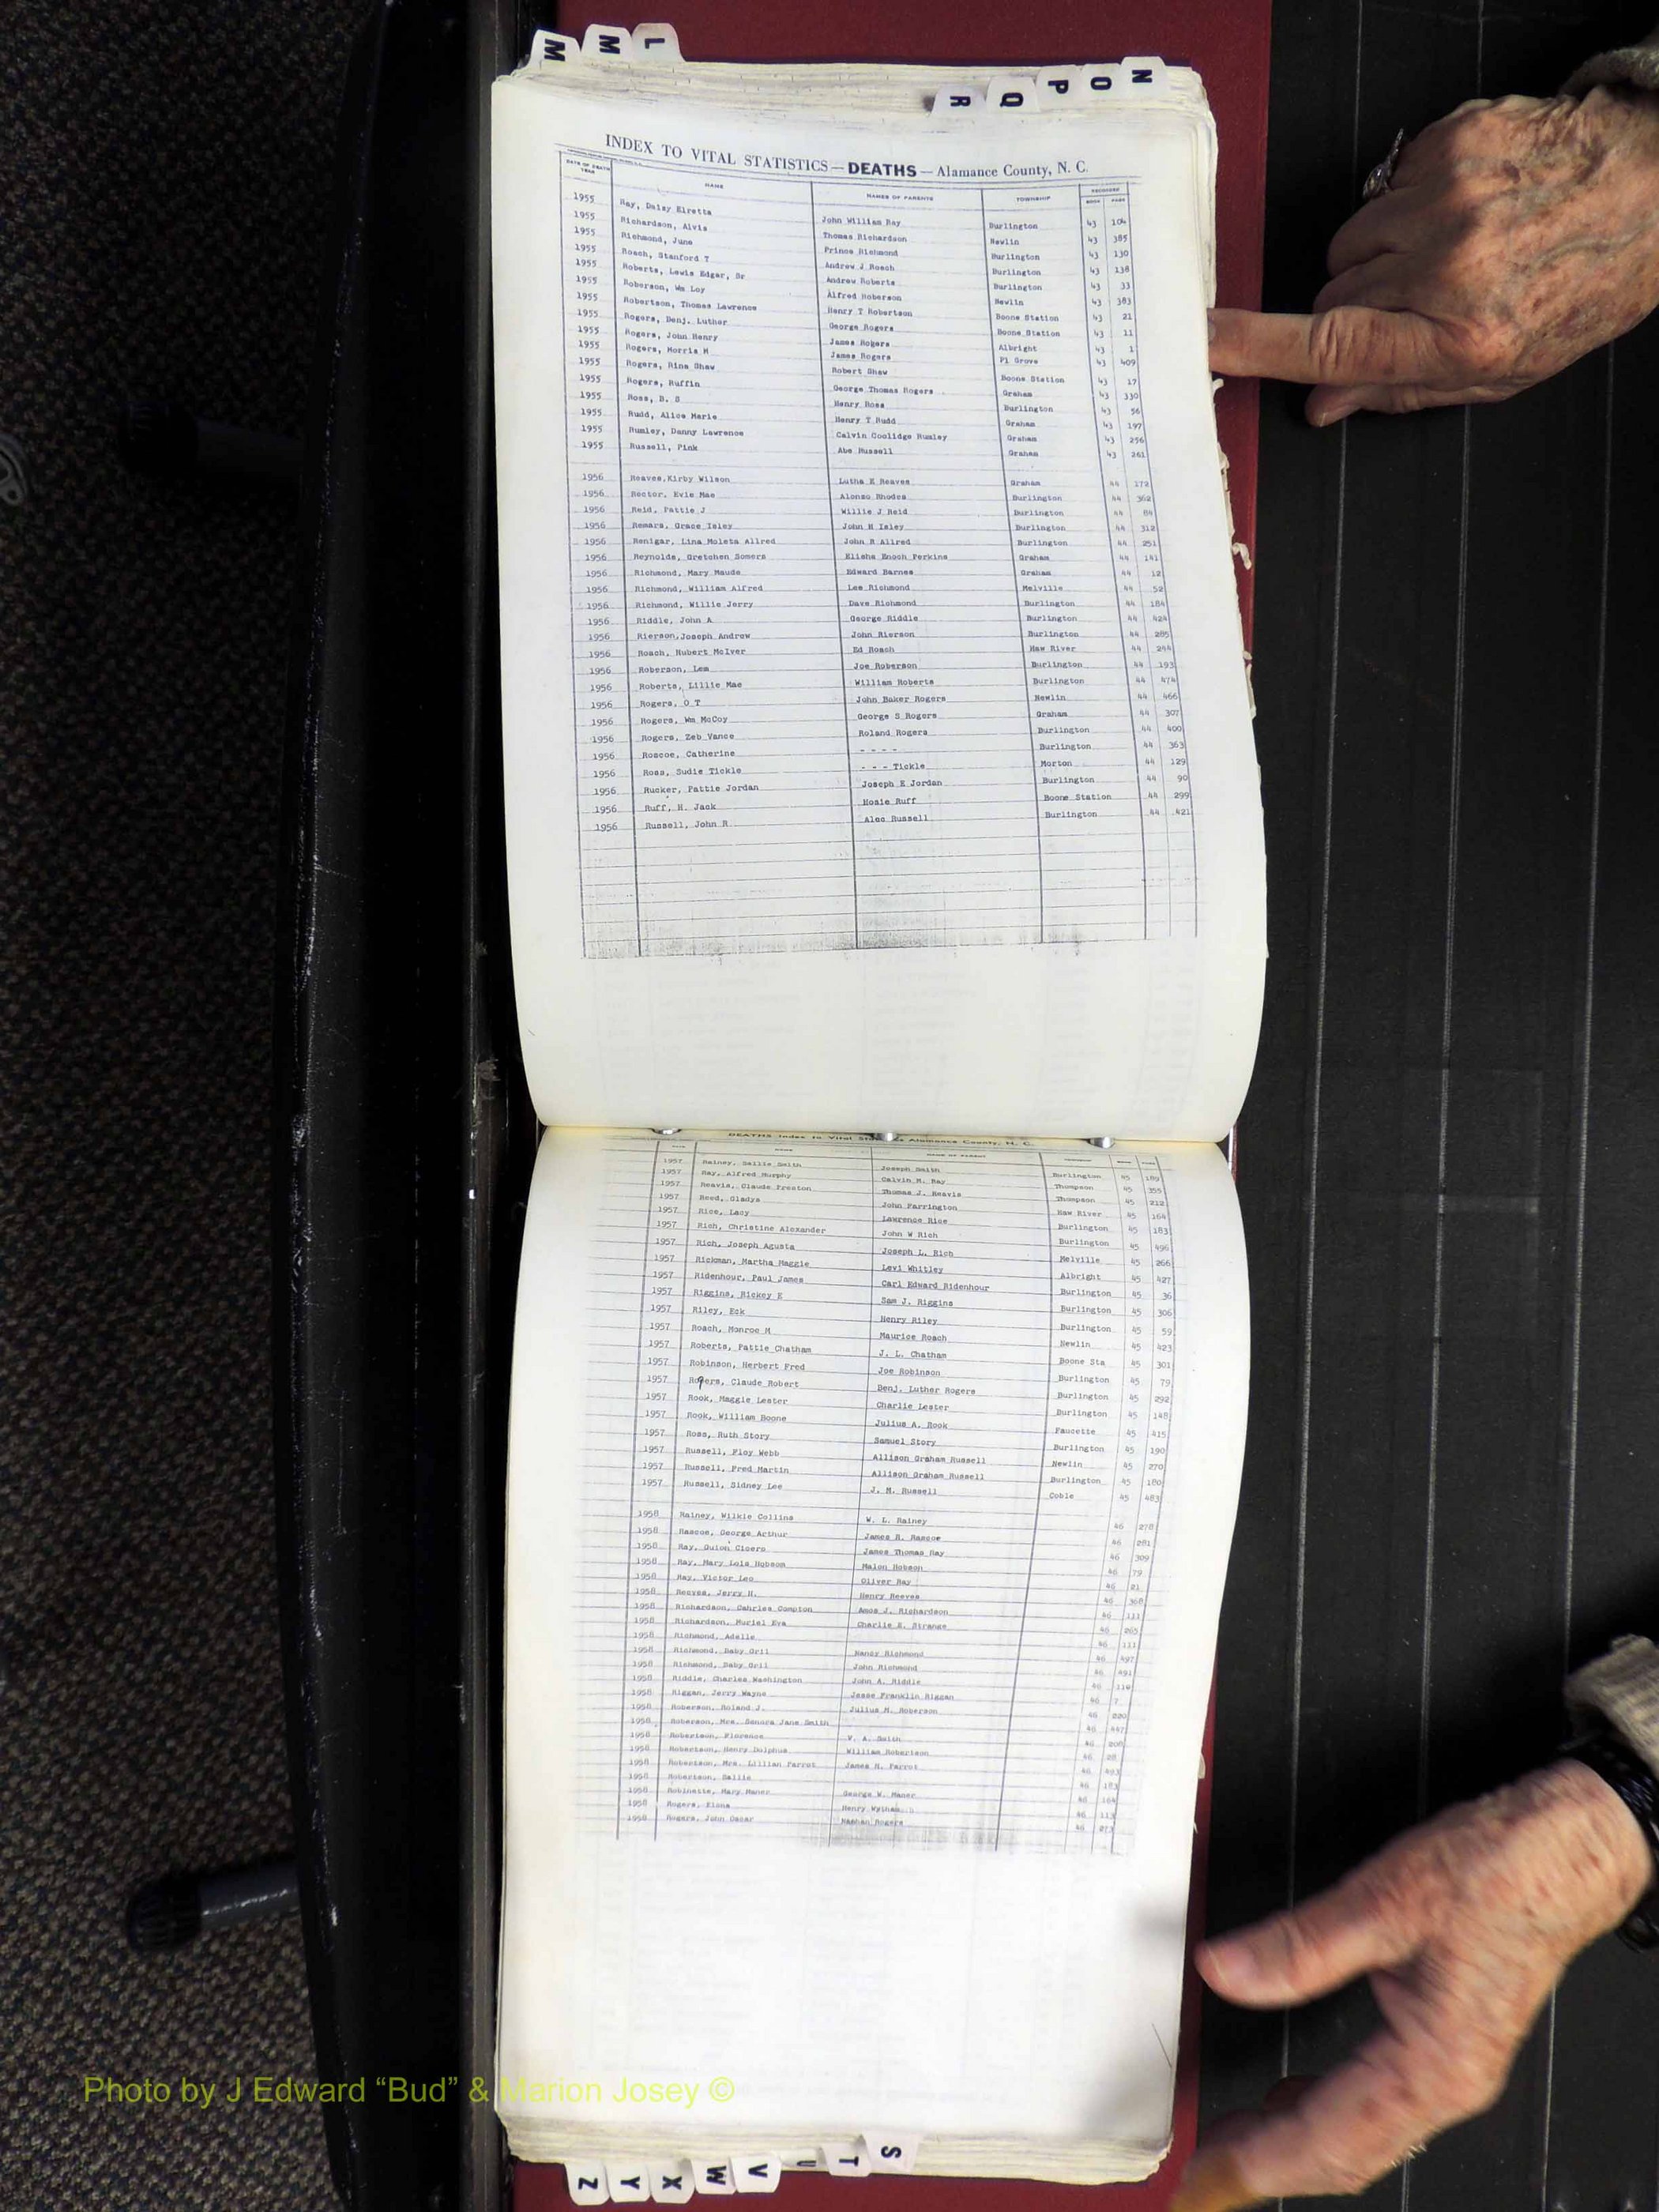 M M L
N O P Q R
INDEX TO VITAL STATISTICS — DEATHS — Alamance County, N. C.
DATE OF DEATH YEAR NAME NAMES OF PARENTS TOWNSHIP RECORDED BOOK PAGE
1955 Ray, Daisy Elretta John William Ray Burlington 43 104
1955 Richardson, Alvis Thomas Richardson Newlin 43 385
1955 Richmond, June Prince Richmond Burlington 43 130
1955 Roach, Stanford T Andrew J Roach Burlington 43 138
1955 Roberts, Lewis Edgar, Sr Andrew Roberts Burlington 43 33
1955 Roberson, Wm Loy Alfred Roberson Newlin 43 383
1955 Robertson, Thomas Lawrence Henry T Robertson Boone Station 43 21
1955 Rogers, Benj. Luther George Rogers Boone Station 43 11
1955 Rogers, John Henry James Rogers Albright 43 1
1955 Rogers, Morris M James Rogers Pl Grove 43 409
1955 Rogers, Rina Shaw Robert Shaw Boone Station 43 17
1955 Rogers, Ruffin George Thomas Rogers Graham 43 330
1955 Ross, B. S Henry Ross Burlington 43 56
1955 Rudd, Alice Marie Henry T Rudd Graham 43 197
1955 Rumley, Danny Lawrence Calvin Coolidge Rumley Graham 43 256
1955 Russell, Pink Abe Russell Graham 43 261
1956 Reaves, Kirby Wilson Lutha E Reaves Graham 44 172
1956 Rector, Evie Mae Alonzo Rhodes Burlington 44 362
1956 Reid, Pattie J Willie J Reid Burlington 44 84
1956 Remars, Grace Isley John H Isley Burlington 44 312
1956 Renigar, Lina Moleta Allred John R Allred Burlington 44 251
1956 Reynolds, Gretchen Somers Elisha Enoch Perkins Graham 44 141
1956 Richmond, Mary Maude Edward Barnes Graham 44 12
1956 Richmond, William Alfred Lee Richmond Melville 44 52
1956 Richmond, Willie Jerry Dave Richmond Burlington 44 184
1956 Riddle, John A George Riddle Burlington 44 424
1956 Rierson, Joseph Andrew John Rierson Burlington 44 285
1956 Roach, Hubert McIver Ed Roach Haw River 44 244
1956 Roberson, Lem Joe Roberson Burlington 44 193
1956 Roberts, Lillie Mae William Roberts Burlington 44 474
1956 Rogers, O T John Baker Rogers Newlin 44 466
1956 Rogers, Wm McCoy George S Rogers Graham 44 307
1956 Rogers, Zeb Vance Roland Rogers Burlington 44 400
1956 Roscoe, Catherine - - - - Burlington 44 363
1956 Ross, Sudie Tickle - - - Tickle Morton 44 129
1956 Rucker, Pattie Jordan Joseph E Jordan Burlington 44 90
1956 Ruff, H. Jack Hosie Ruff Boone Station 44 299
1956 Russell, John R Alec Russell Burlington 44 421
DEATHS Index to Vital Alamance County, N. C.
1957 Rainey, Sallie Smith Joseph Smith Burlington 45 189
1957 Ray, Alfred Murphy Calvin M. Ray Thompson 45 355
1957 Reavis, Claude Preston Thomas J. Reavis Thompson 45 212
1957 Reed, Gladys John Farrington Haw River 45 164
1957 Rice, Lacy Lawrence Rice Burlington 45 183
1957 Rich, Christine Alexander John W Rich Burlington 45 496
1957 Rich, Joseph Agusta Joseph L. Rich Melville 45 266
1957 Rickman, Martha Maggie Levi Whitley Albright 45 427
1957 Ridenhour, Paul James Carl Edward Ridenhour Burlington 45 36
1957 Riggins, Rickey E Sam J. Riggins Burlington 45 306
1957 Riley, Eck Henry Riley Burlington 45 59
1957 Roach, Monroe M Maurice Roach Newlin 45 423
1957 Roberts, Pattie Chatham J. L. Chatham Boone Sta 45 301
1957 Robinson, Herbert Fred Joe Robinson Burlington 45 79
1957 Rogers, Claude Robert Benj. Luther Rogers Burlington 45 292
1957 Rook, Maggie Lester Charlie Lester Burlington 45 148
1957 Rook, William Boone Julius A. Rook Faucette 45 415
1957 Ross, Ruth Story Samuel Story Burlington 45 190
1957 Russell, Floy Webb Allison Graham Russell Newlin 45 270
1957 Russell, Fred Martin Allison Graham Russell Burlington 45 180
1957 Russell, Sidney Lee J. M. Russell Coble 45 483
1958 Rainey, Wilkie Collins W. L. Rainey 46 278
1958 Rascoe, George Arthur James R. Rascoe 46 281
1958 Ray, Quion Cicero James Thomas Ray 46 309
1958 Ray, Mary Lois Hobson Malon Hobson 46 79
1958 Ray, Victor Leo Oliver Ray 46 21
1958 Reeves, Jerry H. Henry Reeves 46 368
1958 Richardson, Cahrles Compton Amos J. Richardson 46 111
1958 Richardson, Muriel Eva Charlie E. Strange 46 265
1958 Richmond, Adelle 46 111
1958 Richmond, Baby Gril Nancy Richmond 46 497
1958 Richmond, Baby Gril John Richmond 46 491
1958 Riddle, Charles Washington John A. Riddle 46
1958 Riggan, Jerry Wayne Jesse Franklin Riggan 46 7
1958 Roberson, Roland J. Julius M. Roberson 46 220
1958 Roberson, Mrs. Senora Jane Smith 46 447
1958 Robertson, Florence V. A. Smith 46
1958 Robertson, Henry Dolphus William Robertson 46 28
1958 Robertson, Mrs. Lillian Parrot James H. Parrot 46 493
1958 Robertson, Sallie 46 183
1958 Robinette, Mary Maner George W. Maner 46 164
1958 Rogers, Henry 46 113
1958 Rogers, John Oscar Nathan Rogers 46 273
Photo by J Edward “Bud” & Marion Josey ©
Z Y X W V U T S